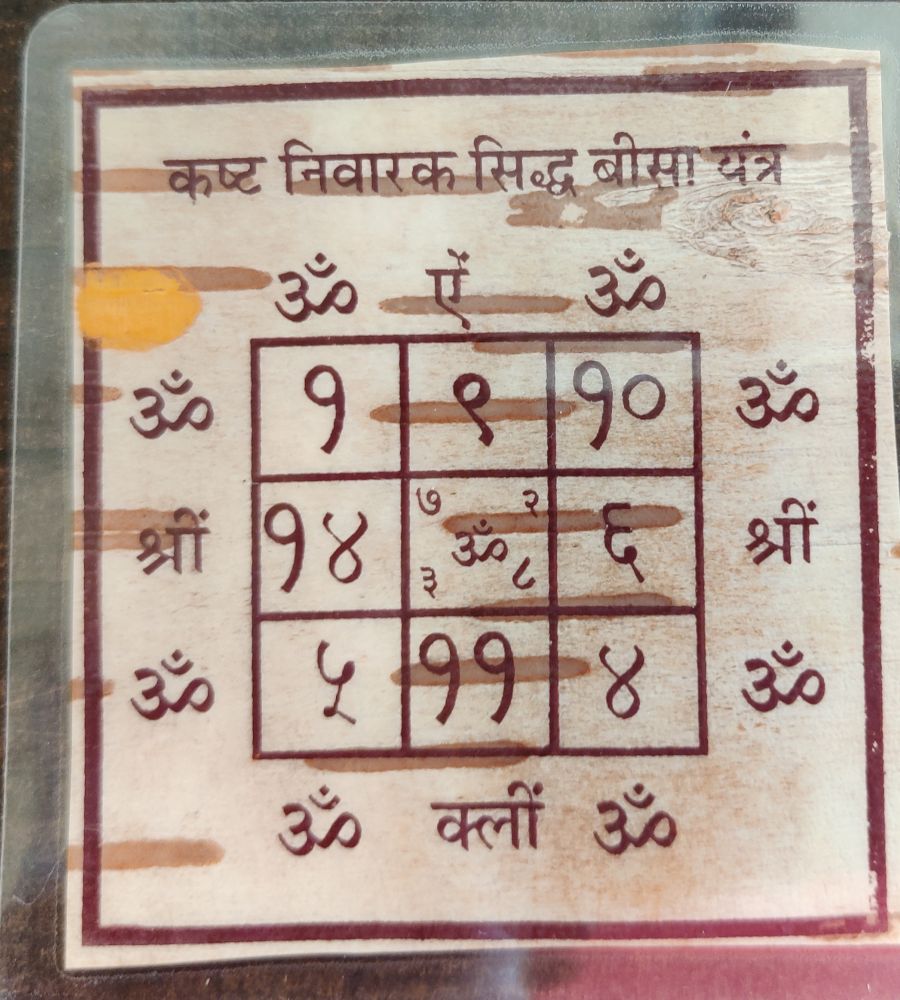 कष्ट निवारक सिद्ध बीसा यंत्र
ॐ ऐं ॐ
ॐ १ ९ १० ॐ
७ २
श्रीं १४ ॐ ६ श्रीं
३ ८
ॐ ५ ११ ४ ॐ
ॐ क्लीं ॐ